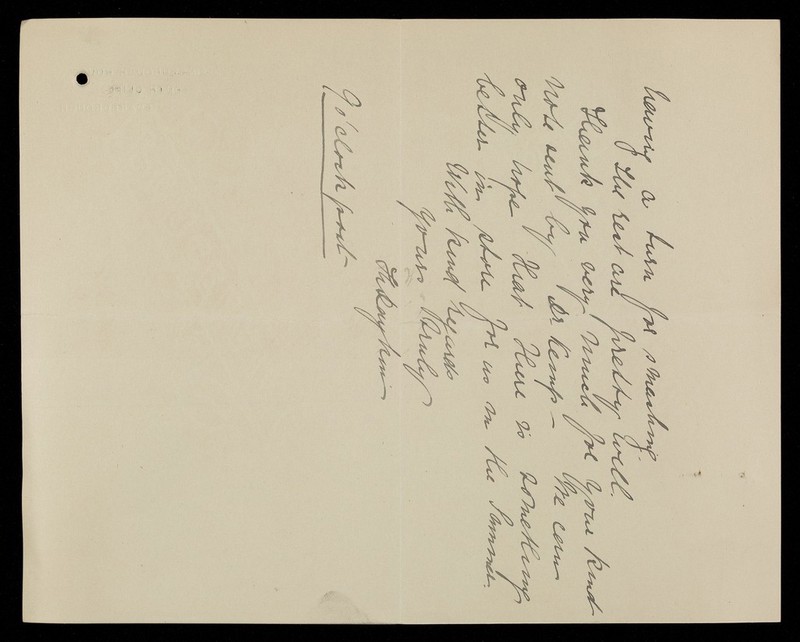 having a turn for smashing.
The rest are pretty well.
Thank you very much for your kind
note sent by Dr Kemp – We can
only hope that there is something
better in store for us in the Summer.
With kind regards
Yours truly
7 o'clock post